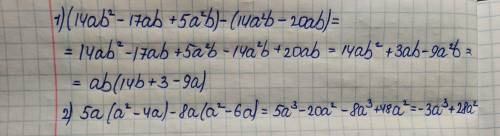 1) (14ab² - 17ab + 5a²b) - (14a²b - 20ab) =
= 14ab² - 17ab + 5a²b - 14a²b + 20ab = 14ab² + 3ab - 9a²b =
= ab(14b + 3 - 9a)
2) 5a(a² - 4a) - 8a(a² - 6a) = 5a³ - 20a² - 8a³ + 48a² = -3a³ + 28a²